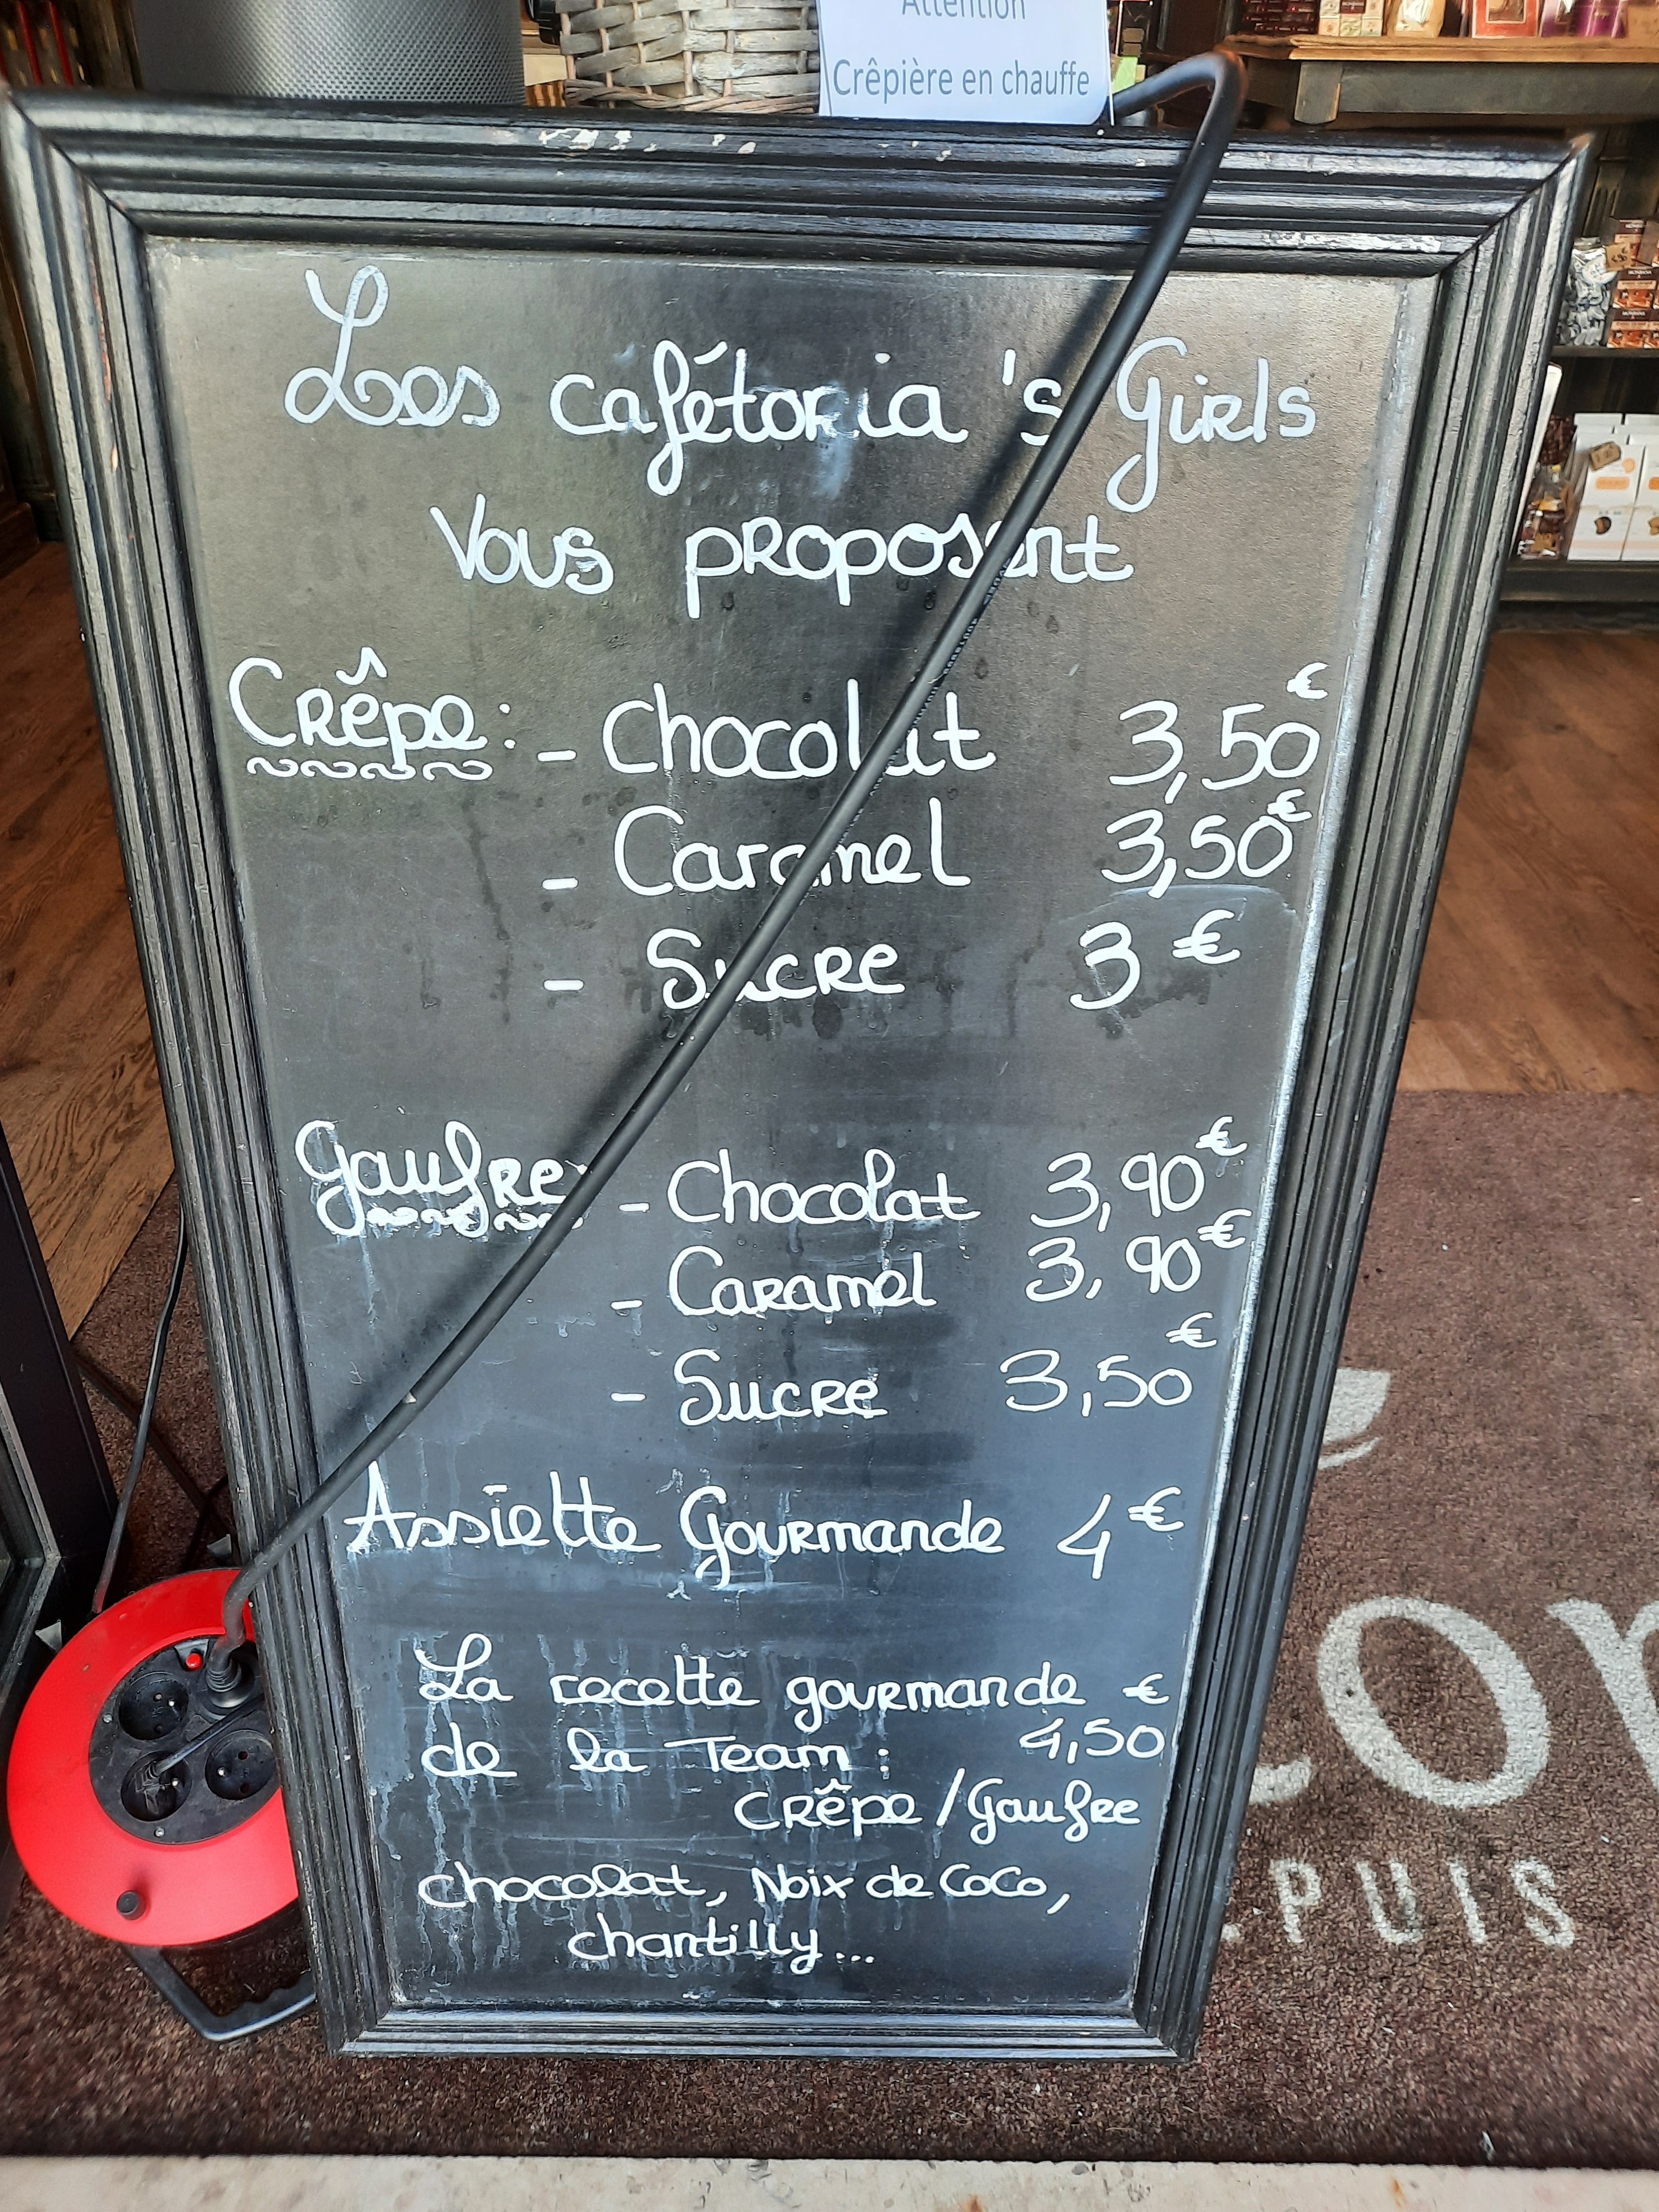 Attention
Crêpière en chauffe
Les cafétoria's Girls
Vous proposent
Crêpe : - Chocolat 3,50€
- Caramel 3,50€
- Sucre 3€
Gaufre - Chocolat 3,90€
- Caramel 3,90€
- Sucre 3,50€
Assiette Gourmande 4€
La recette gourmande €
de la Team : 4,50
Crêpe / Gaufre
chocolat, Noix de CoCo,
chantilly...
PUIS